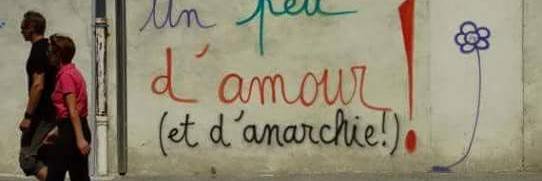 Un peu
d'amour!
(et d'anarchie!)